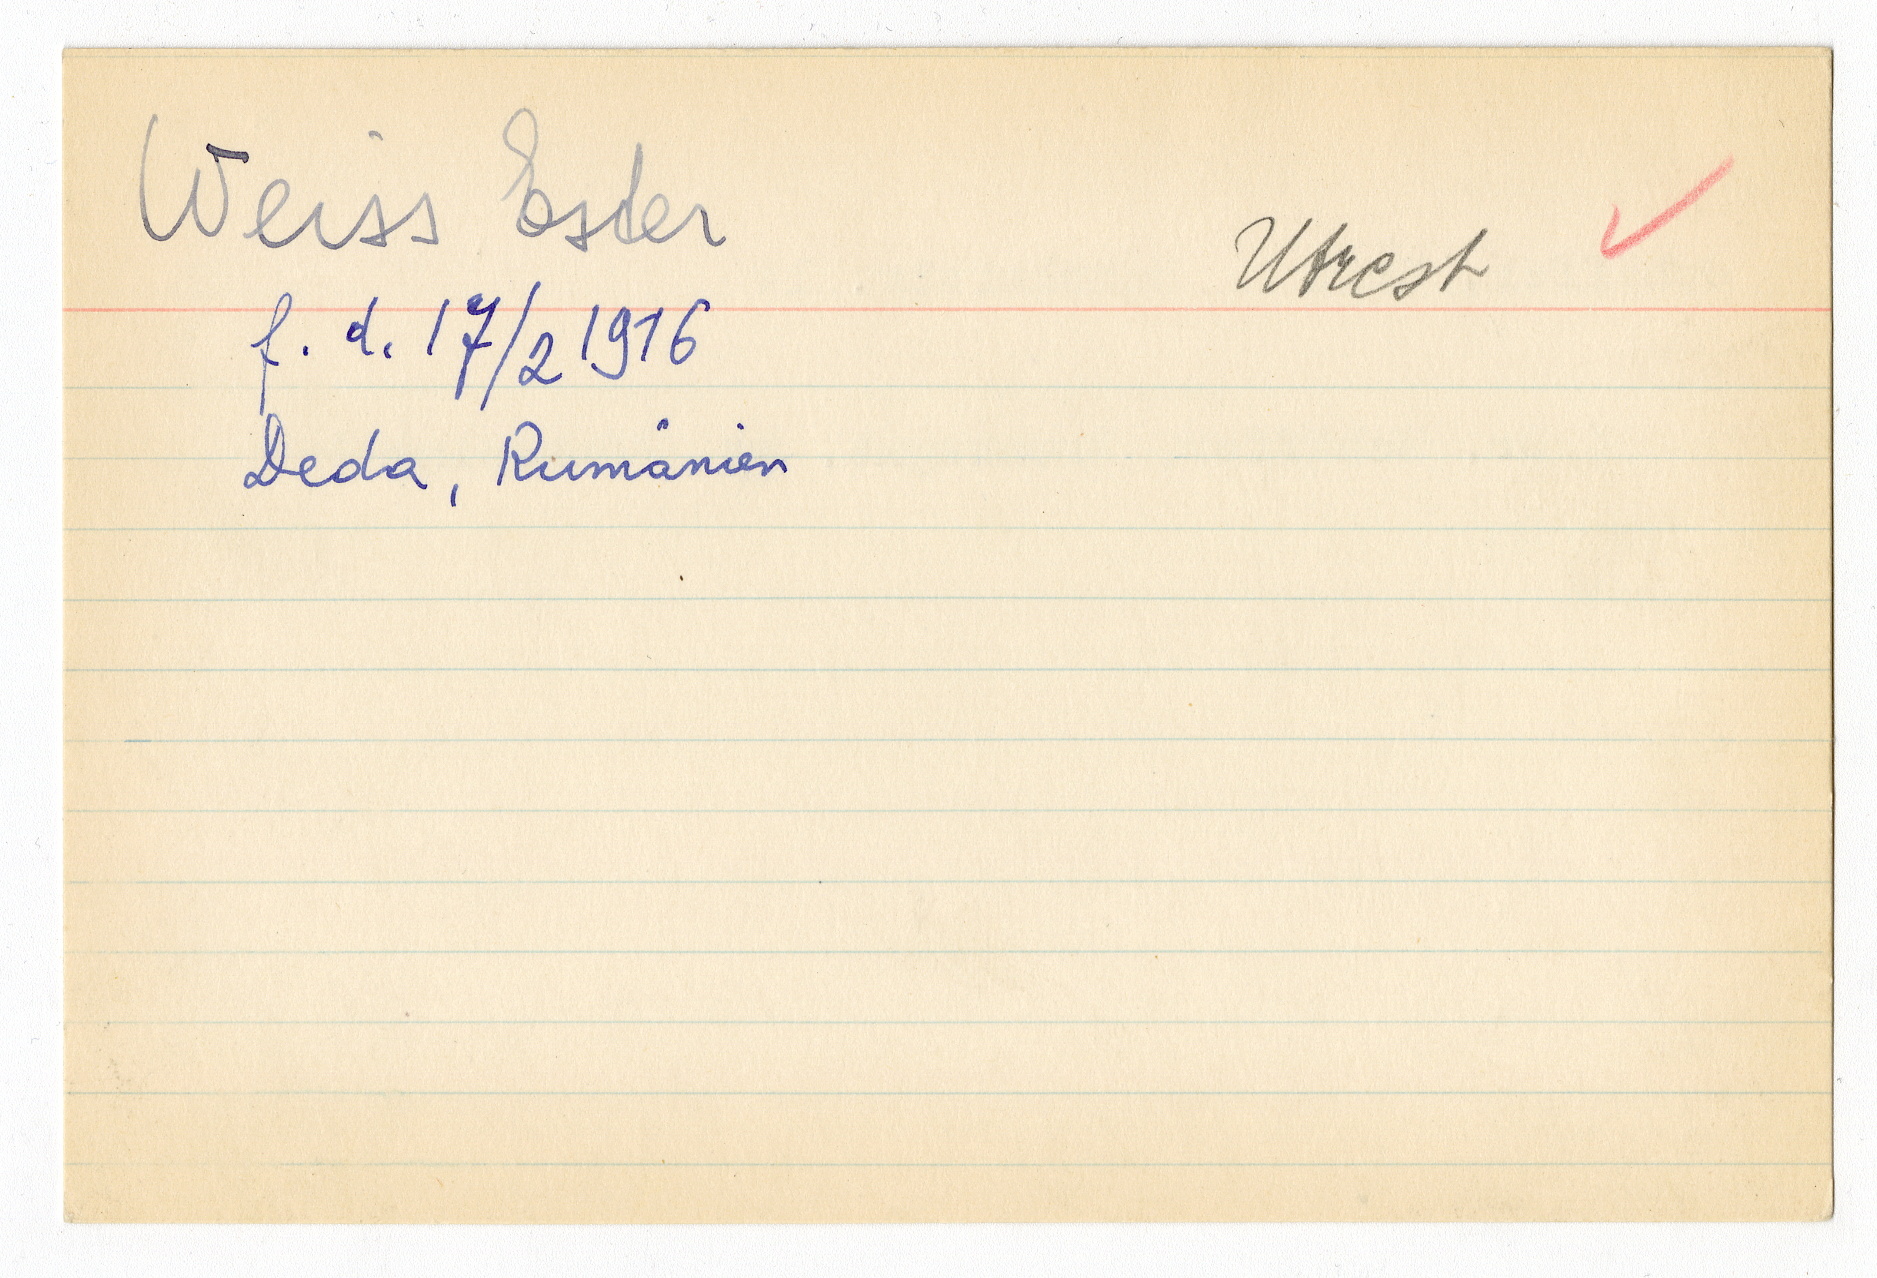 Weiss Ester
Utrest
f. d. 17/2 1916
Deda, Rumänien